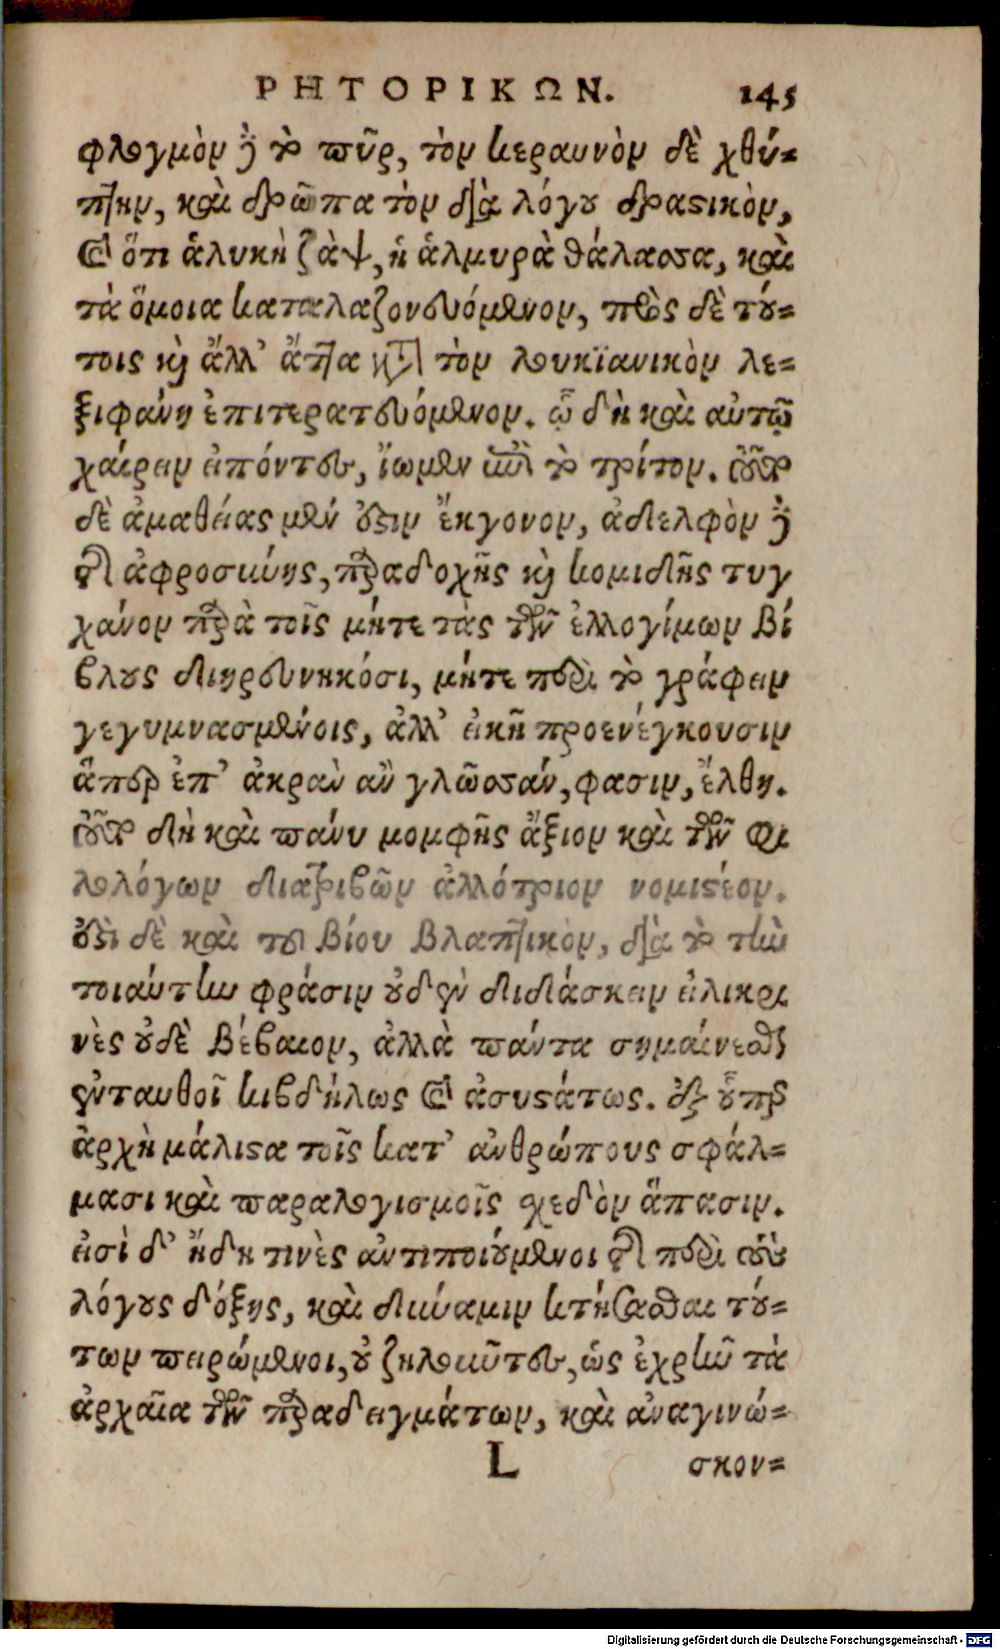 ΡΗΤΟΡΙΚΩΝ. 145
φλογμὸν δὲ τὸ πῦρ, τὸν κεραυνὸν δὲ χθύ-
πτην, καὶ δρῶπα τὸν διὰ λόγου δραστικὸν,
καὶ ὅτι ἁλυκὴ ζὰψ, ἡ ἁλμυρὰ θάλασσα, καὶ
τὰ ὅμοια καταλαζονευόμενον, πρὸς δὲ τού-
τοις καὶ ἄλλ' ἄττα κατὰ τὸν λουκϊανικὸν λε-
ξιφάνη ἐπιτερατευόμενον. ᾧ δὴ καὶ αὐτῷ
χαίρειν εἰπόντες, ἴωμεν ἐπὶ τὸ τρίτον. τοῦτο
δὲ ἀμαθείας μὲν ὄστιν ἔκγονον, ἀδελφὸν δὲ
τῆς ἀφροσύνης, παραδοχῆς καὶ κομιδῆς τυγ
χάνον παρὰ τοῖς μήτε τὰς τῶν ἐλλογίμων βί
βλους διηρευνηκόσι, μήτε περὶ τὸ γράφειν
γεγυμνασμένοις, ἀλλ' εἰκῆ προενέγκουσιν
ἅπερ ἐπ' ἀκρὰν ἂν γλῶσσάν, φασιν, ἔλθη.
τοῦτο δὴ καὶ πάνυ μομφῆς ἄξιον καὶ τῶν φι
λολόγων διατριβῶν ἀλλότριον νομιστέον.
ἔστι δὲ καὶ τοῦ βίου βλαπτικὸν, διὰ τὸ τὴν
τοιαύτην φράσιν οὐδὲν διδάσκειν εἰλικρι
νὲς οὐδὲ βέβαιον, ἀλλὰ πάντα σημαίνεσθαι
ἐνταυθοῖ κιβδήλως καὶ ἀσυστάτως. ἐξ οὗπερ
ἀρχὴ μάλιστα τοῖς κατ' ἀνθρώπους σφάλ-
μασι καὶ παραλογισμοῖς σχεδὸν ἅπασιν.
εἰσὶ δ' ἤδη τινὲς ἀντιποιούμενοι τῆς περὶ τοὺς
λόγους δόξης, καὶ δύναμιν κτήσασθαι τού-
των πειρώμενοι, οὐ ζηλοῦντες, ὡς ἐχρῆν τὰ
ἀρχαῖα τῶν παραδειγμάτων, καὶ ἀναγινώ-
L σκον-
Digitalisierung gefördert durch die Deutsche Forschungsgemeinschaft - DFG